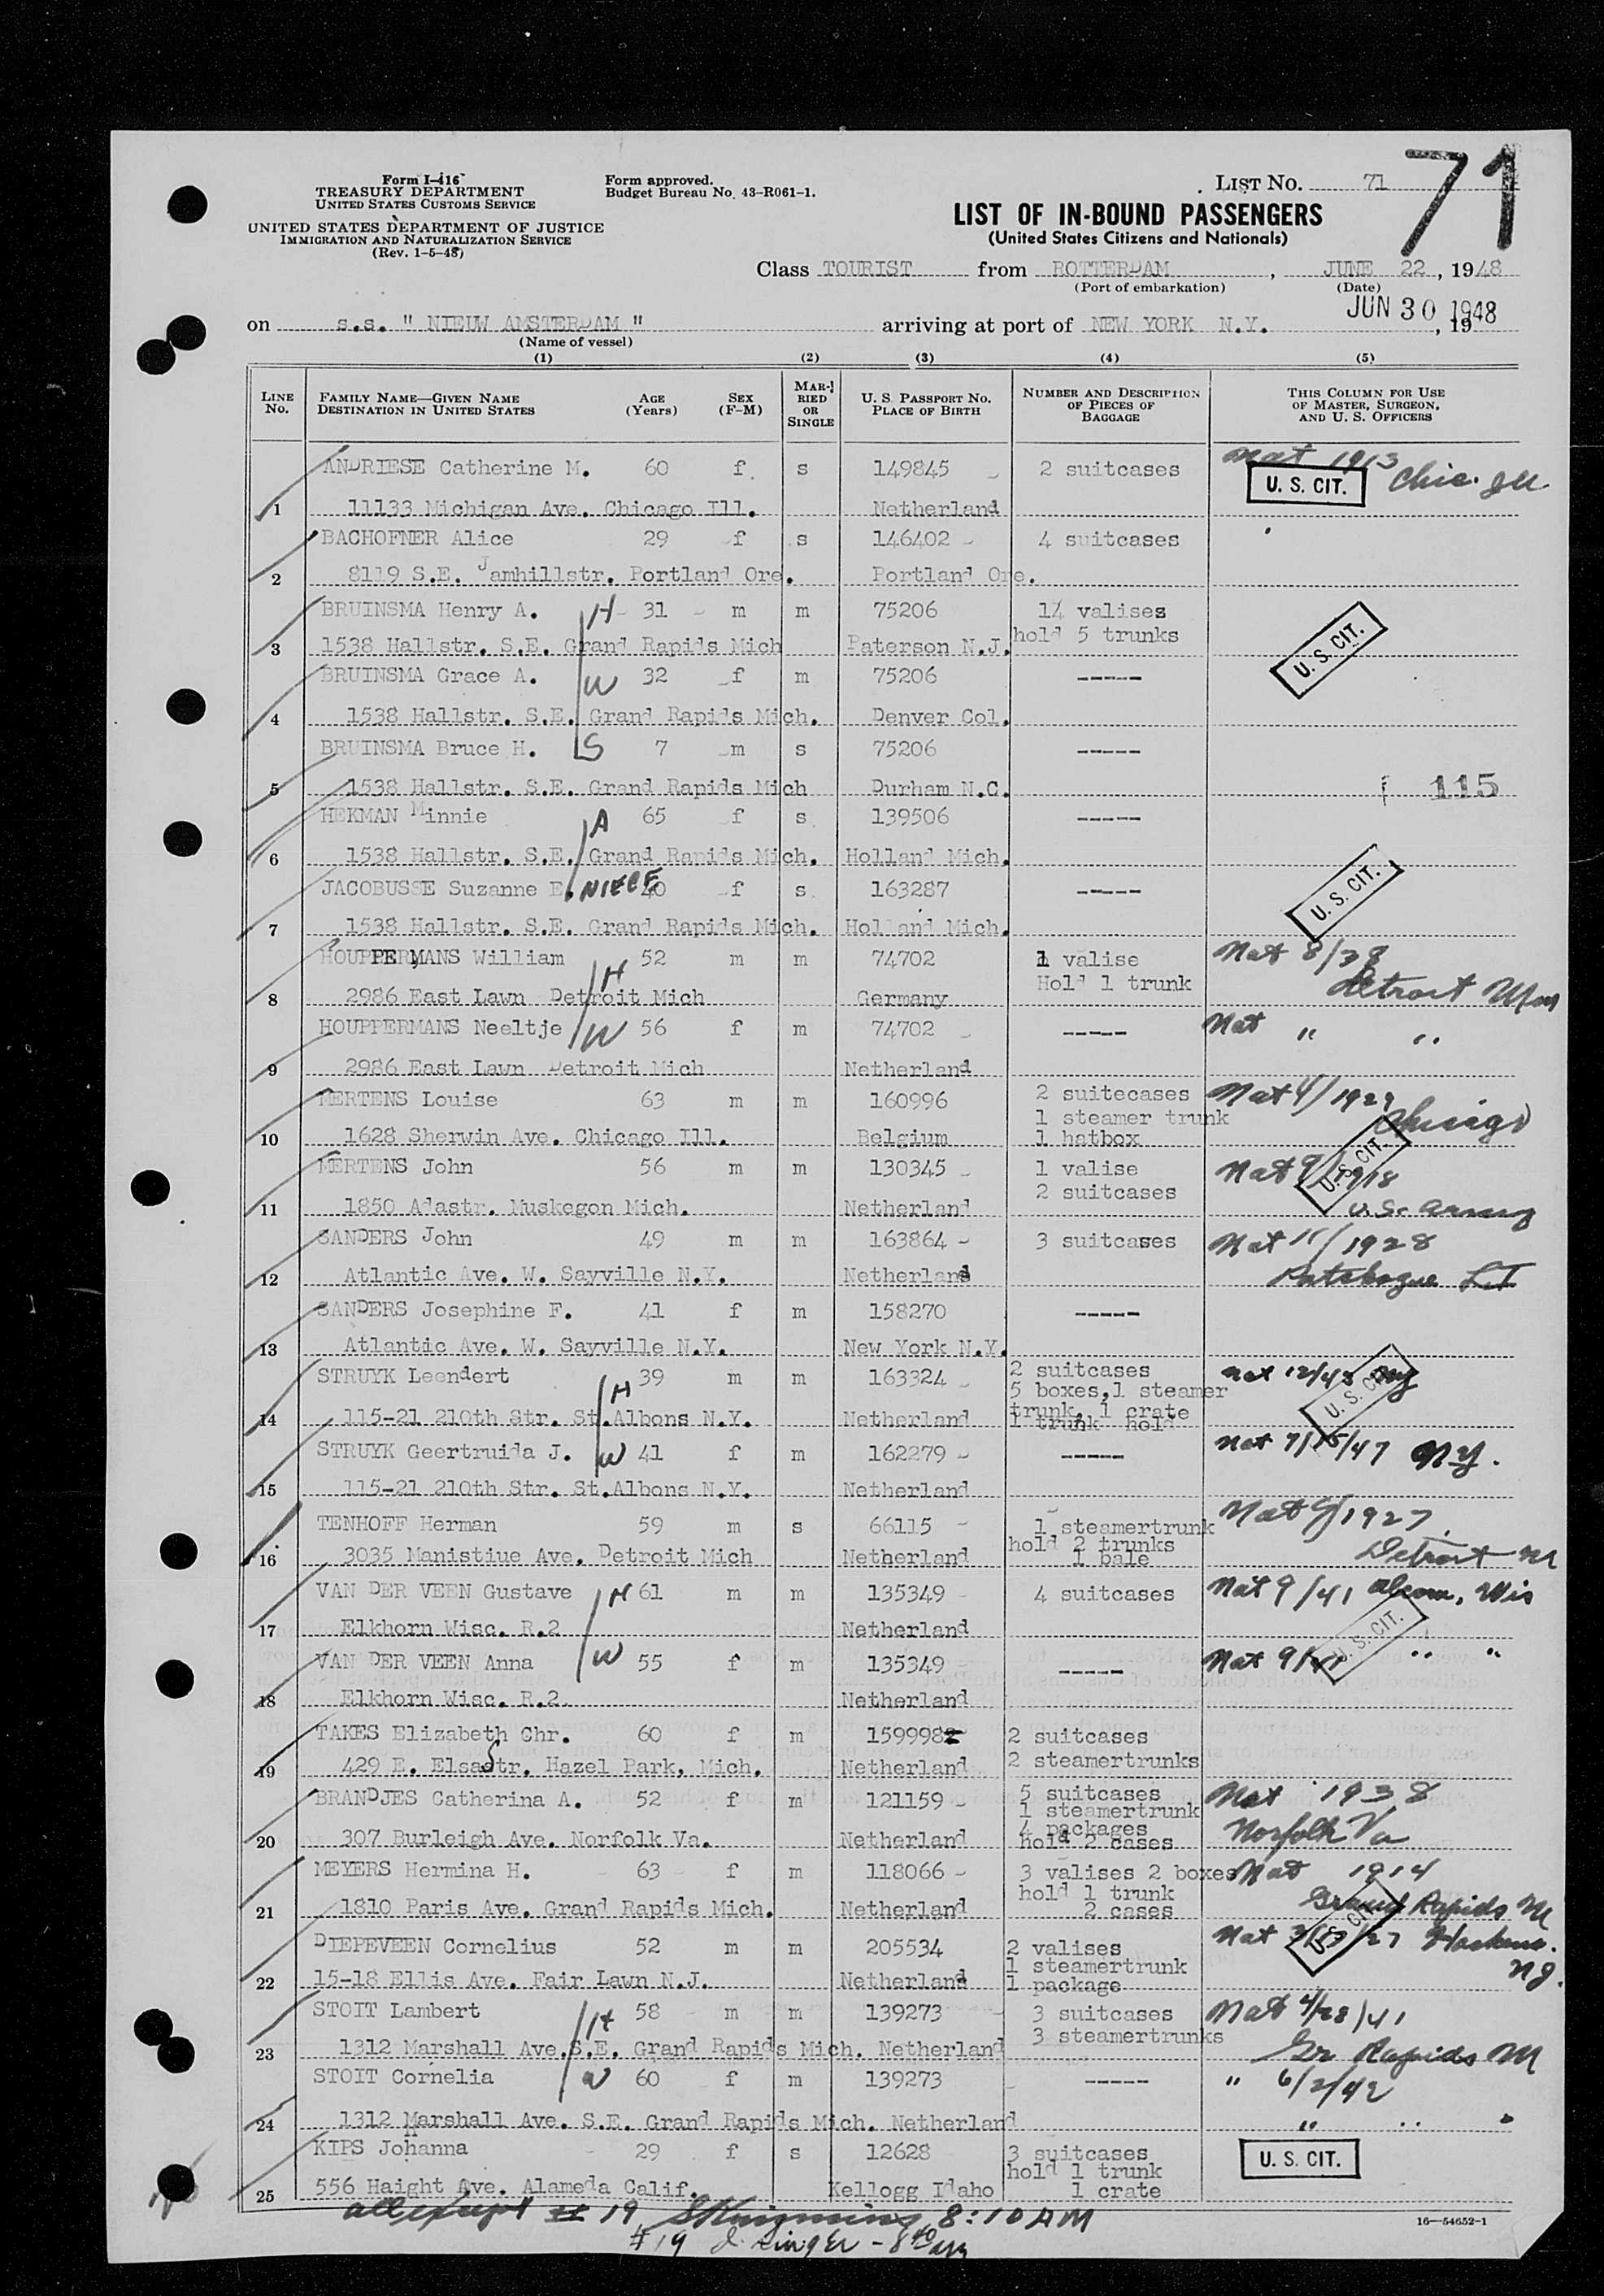 71
Form I-416
TREASURY DEPARTMENT
UNITED STATES CUSTOMS SERVICE
UNITED STATES DEPARTMENT OF JUSTICE
IMMIGRATION AND NATURALIZATION SERVICE
(Rev. 1-5-48)
Form approved.
Budget Bureau No. 43-R061-1.
LIST NO. 71
LIST OF IN-BOUND PASSENGERS
(United States Citizens and Nationals)
Class TOURIST from ROTTERDAM, JUNE 22, 1948
(Port of embarkation) (Date)
JUN 30 1948
on s.s. " NIEUW AMSTERDAM " arriving at port of NEW YORK N.Y. , 19
(Name of vessel)
(1) (2) (3) (4) (5)
LINE NO. FAMILY NAME—GIVEN NAME DESTINATION IN UNITED STATES AGE (Years) SEX (F-M) MARRIED OR SINGLE U. S. PASSPORT NO. PLACE OF BIRTH NUMBER AND DESCRIPTION OF PIECES OF BAGGAGE THIS COLUMN FOR USE OF MASTER, SURGEON, AND U. S. OFFICERS
ANDRIESE Catherine M. 60 f. s 149845 2 suitcases Nat 1913
U. S. CIT. Chic. Ill
1 11133 Michigan Ave. Chicago Ill. Netherland
BACHOFNER Alice 29 f s 146402 4 suitcases
2 8119 S.E. Jamhillstr. Portland Ore. Portland Ore.
BRUINSMA Henry A. H 31 m m 75206 14 valises
hold 5 trunks
3 1538 Hallstr. S.E. Grand Rapids Mich Paterson N.J. U. S. CIT.
BRUINSMA Grace A. W 32 f m 75206 -----
4 1538 Hallstr. S.E. Grand Rapids Mich. Denver Col.
BRUINSMA Bruce H. S 7 m s 75206 -----
5 1538 Hallstr. S.E. Grand Rapids Mich Durham N.C. 115
HEKMAN Minnie A 65 f s. 139506 -----
6 1538 Hallstr. S.E. Grand Rapids Mich. Holland Mich.
JACOBUSSE Suzanne E. NIECE 40 f s. 163287 ----- U. S. CIT.
7 1538 Hallstr. S.E. Grand Rapids Mich. Holland Mich.
HOUPPERMANS William H 52 m m 74702 1 valise Nat 8/38
Hold 1 trunk Detroit
8 2986 East Lawn Detroit Mich Germany
HOUPPERMANS Neeltje W 56 f m 74702 ----- Nat " "
9 2986 East Lawn Detroit Mich Netherland
MERTENS Louise 63 m m 160996 2 suitecases Nat 4/1929
1 steamer trunk Chicago
10 1628 Sherwin Ave. Chicago Ill. Belgium 1 hatbox
MERTENS John 56 m m 130345 1 valise Nat 9/1918
2 suitcases U. S. CIT.
11 1850 Adastr. Muskegon Mich. Netherland U.S. Army
SANDERS John 49 m m 163864 3 suitcases Nat 11/1928
12 Atlantic Ave. W. Sayville N.Y. Netherland Patchogue LI
SANDERS Josephine F. 41 f m 158270 -----
13 Atlantic Ave. W. Sayville N.Y. New York N.Y.
STRUYK Leendert H 39 m m 163324 2 suitcases Nat 12/43 NY
5 boxes,1 steamer U. S. CIT.
trunk, 1 crate
14 115-21 210th Str. St.Albons N.Y. Netherland 1 trunk hold
STRUYK Geertruida J. W 41 f m 162279 ----- Nat 7/15/47 NY.
15 115-21 210th Str. St.Albons N.Y. Netherland
TENHOFF Herman 59 m s 66115 1 steamertrunk Nat 9/1927
hold 2 trunks
16 3035 Manistiue Ave. Detroit Mich Netherland 1 bale Detroit M
VAN DER VEEN Gustave H 61 m m 135349 4 suitcases Nat 9/41 Wis
17 Elkhorn Wisc. R.2 Netherland U. S. CIT.
VAN DER VEEN Anna W 55 f m 135349 ----- Nat 9/41 " "
18 Elkhorn Wisc. R.2. Netherland
TAKES Elizabeth Chr. 60 f m 159998 2 suitcases
2 steamertrunks
19 429 E. ElsaStr. Hazel Park, Mich. Netherland
BRANDJES Catherina A. 52 f m 121159 5 suitcases Nat 1938
1 steamertrunk
4 packages Norfolk Va
20 307 Burleigh Ave. Norfolk Va. Netherland hold 2 cases
MEYERS Hermina H. 63 f m 118066 3 valises 2 boxes Nat 1914
hold 1 trunk Grand Rapids M
21 1810 Paris Ave. Grand Rapids Mich. Netherland 2 cases U. S. CIT.
DIEPEVEEN Cornelius 52 m m 205534 2 valises Nat
1 steamertrunk NJ.
22 15-18 Ellis Ave. Fair Lawn N.J. Netherland 1 package
STOIT Lambert H 58 m m 139273 3 suitcases Nat 4/28/41
3 steamertrunks
23 1312 Marshall Ave.S.E. Grand Rapids Mich. Netherland Gr Rapids M
STOIT Cornelia W 60 f m 139273 ----- " 6/2/42
24 1312 Marshall Ave. S.E. Grand Rapids Mich. Netherland " " "
KIPS Johanna 29 f s 12628 3 suitcases U. S. CIT.
hold 1 trunk
25 556 Haight Ave. Alameda Calif. Kellogg Idaho 1 crate
all except # 19 8:10 AM
16—54652-1
#19